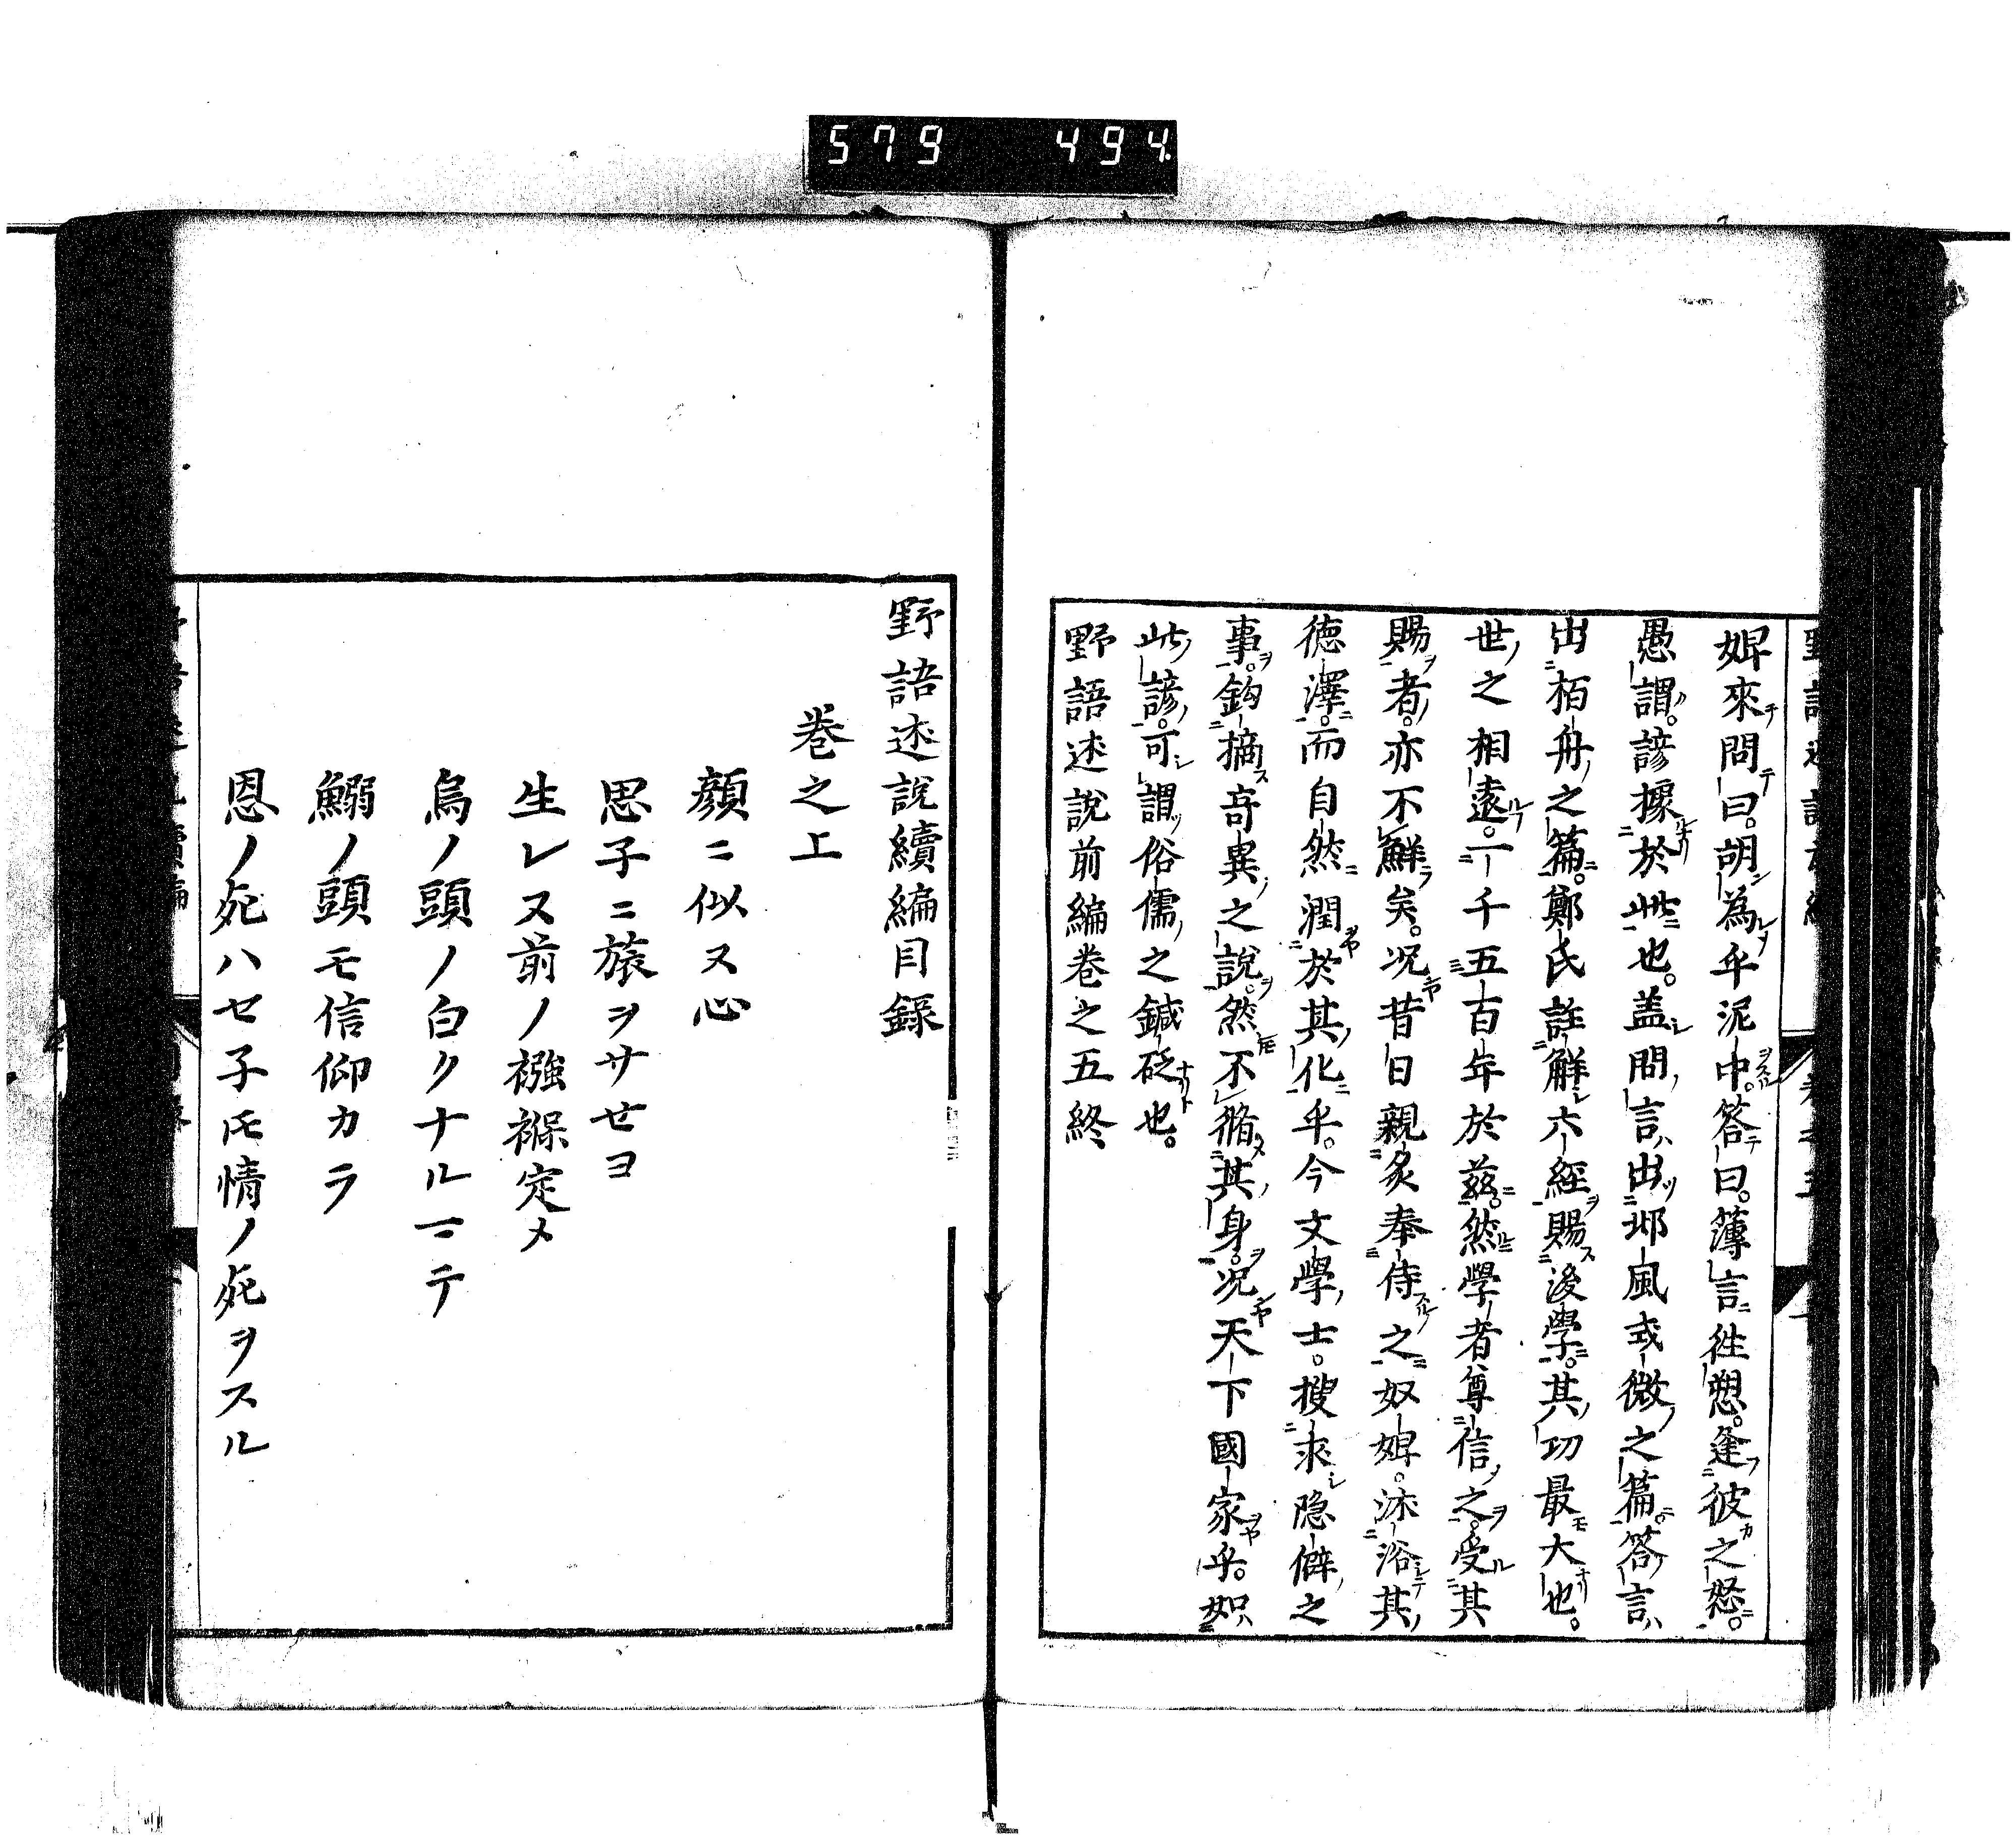 579 494
婢來問曰。胡為乎泥中。答曰。薄言往愬。逢彼之怒。
愚謂。諺據於此也。盖問言出邶風式微之篇。答言
出栢舟之篇。鄭氏註觧六經賜後學。其功最大也。
世之相遠。一千五百年於茲。然學者尊信之。受其
賜者。亦不鮮矣。况昔日親炙奉侍之奴婢。沐浴其
徳澤。而自然潤於其化乎。今文學士。搜求隐僻之
事。鈎摘奇異之說。然不脩其身。况天下國家乎。如
此諺。可謂俗儒之鍼砭也。
野語述說前編巻之五終
野語述說續編目録
巻之上
顔ニ似ヌ心
思子ニ旅ヲサセヨ
生レヌ前ノ襁褓定メ
烏ノ頭ノ白クナルマテ
鰯ノ頭モ信仰カラ
恩ノ死ハセ子𪜈情ノ死ヲスル